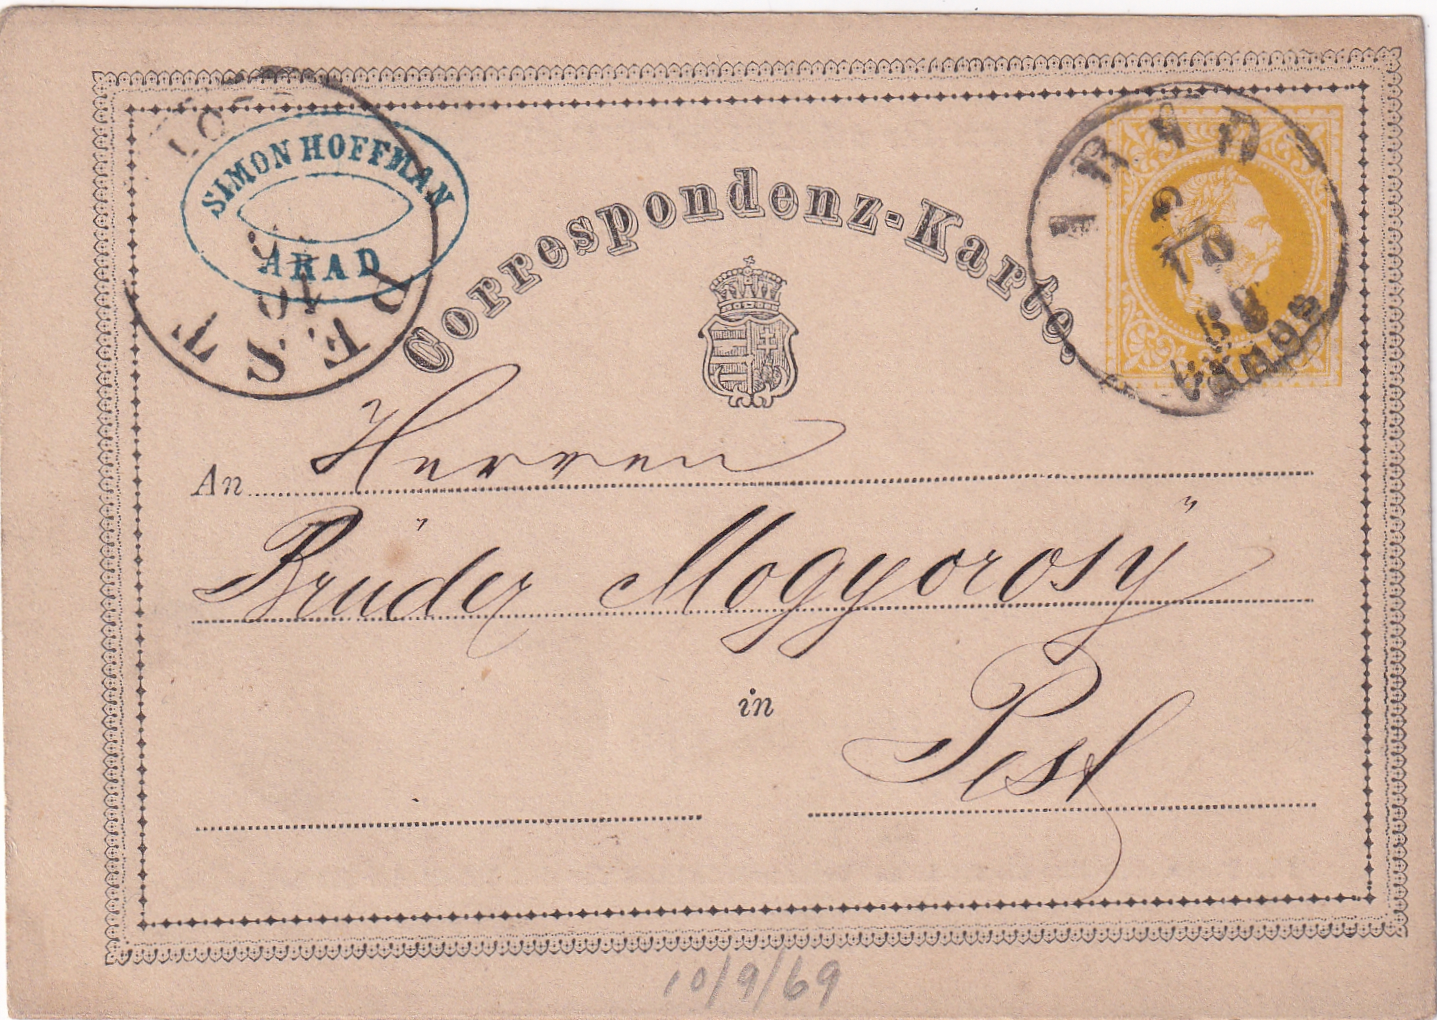 SIMON HOFFMAN
ARAD
PEST
10
Correspondenz-Karte.
ARAD
9/10
An Herren
Brüder Mogyorosÿ
in
Pest
10/9/69